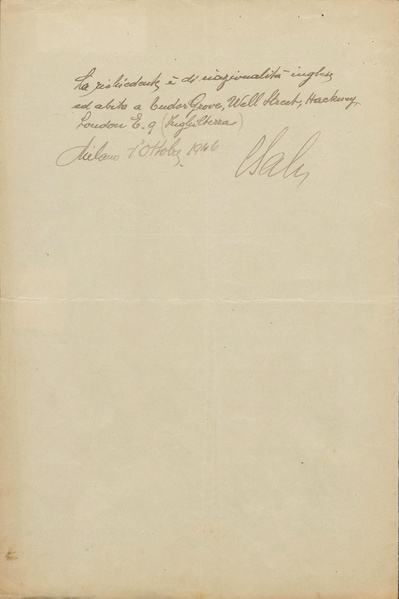 La richiedente è di nazionalità inglese
ed abita a Tudor Grove, Well Street, Hackney,
London E. 9 (Inghilterra)
Milano 1° Ottobre 1946